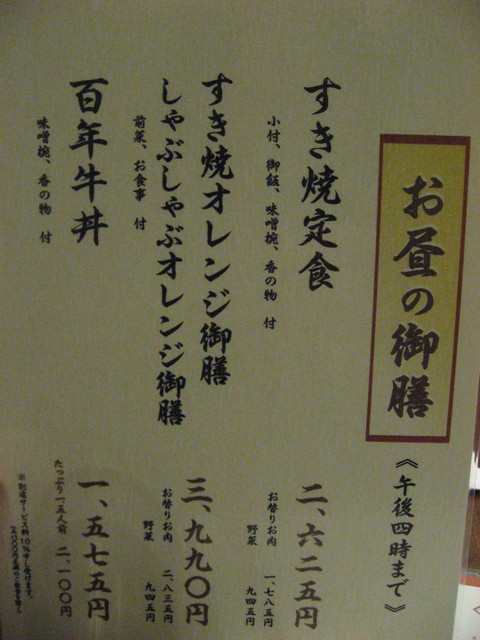 お昼の御膳
《午後四時まで》
すき焼定食
小付、御飯、味噌椀、香の物 付
二、六二五円
お替りお肉 一、七八五円
野菜 九四五円
すき焼オレンジ御膳
しゃぶしゃぶオレンジ御膳
前菜、お食事 付
三、九九〇円
お替りお肉 二、八三五円
野菜 九四五円
百年牛丼
味噌椀、香の物 付
一、五七五円
たっぷり一・五人前 二、一〇〇円
※別途サービス料10%申し受けます。